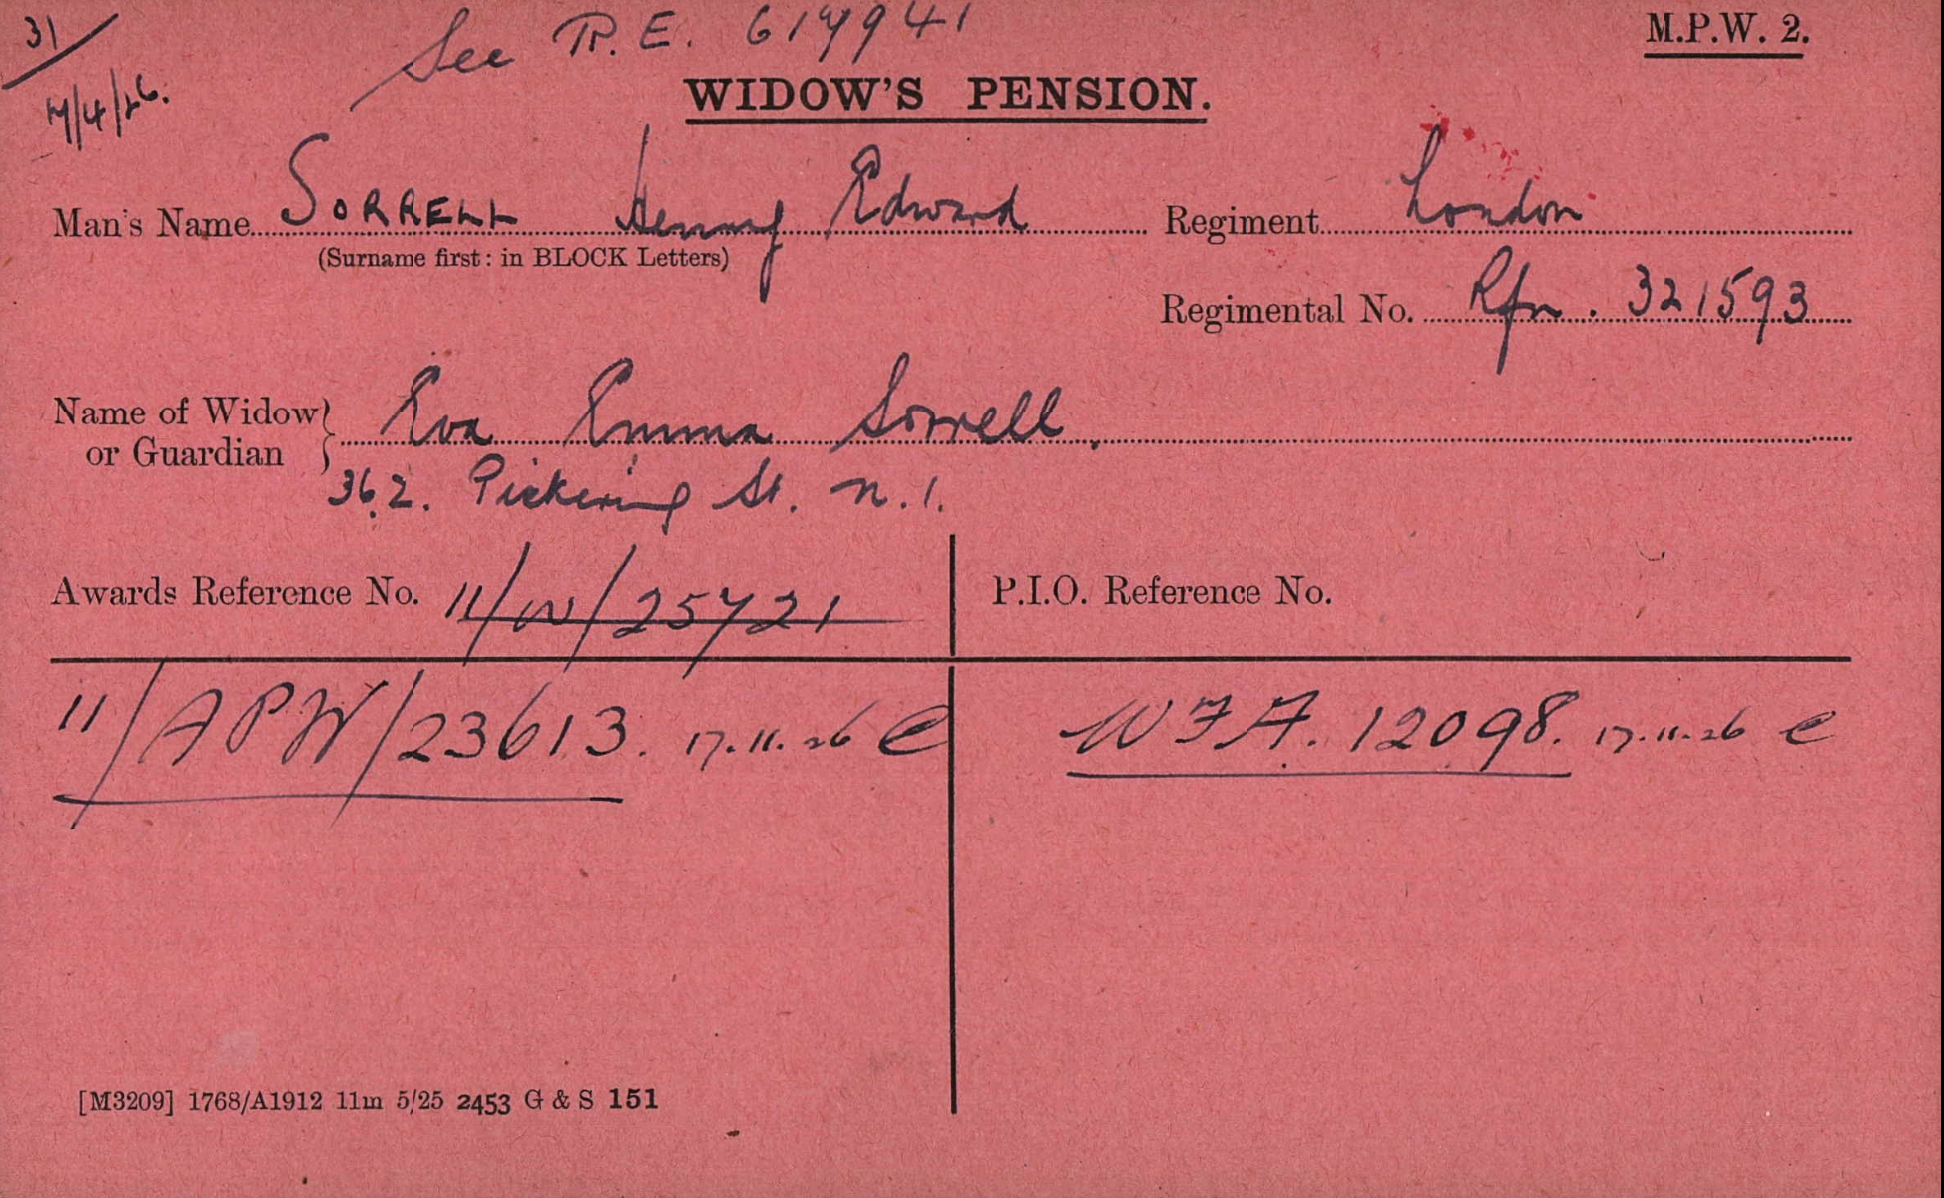 31/
7/4/26.
See P.E. 617941
M.P.W. 2.
WIDOW'S PENSION.
Man's Name SORRELL Henry Edward
(Surname first: in BLOCK Letters)
Regiment London
Regimental No. Rfn. 321593
Name of Widow or Guardian } Eva Emma Sorrell.
36.2. Pickering St. N.1.
Awards Reference No. 11/W/25721
P.I.O. Reference No.
11/APW/23613. 17.11.26 C
WFA. 12098. 17.11.26 C
[M3209] 1768/A1912 11m 5/25 2453 G & S 151